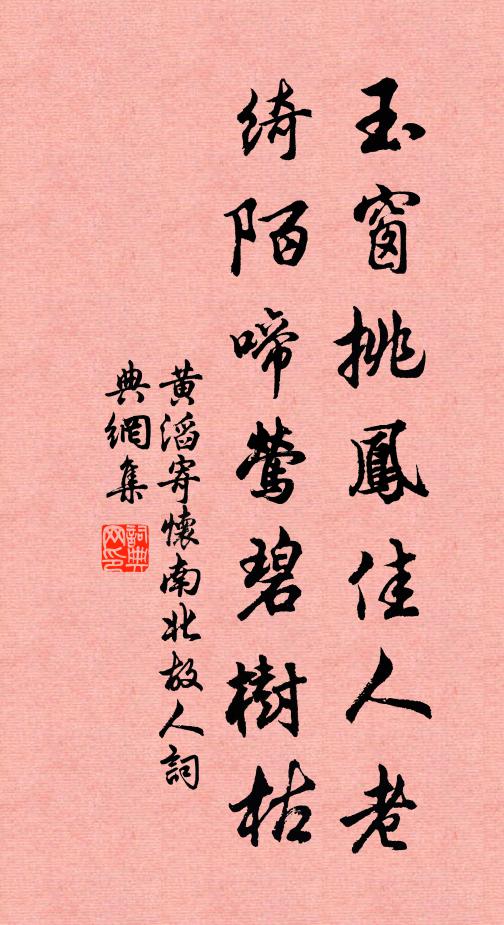 玉窗挑鳳佳人老
綺陌啼鶯碧樹枯
黃滔寄懷南北故人詞
典網集
詞典
网印